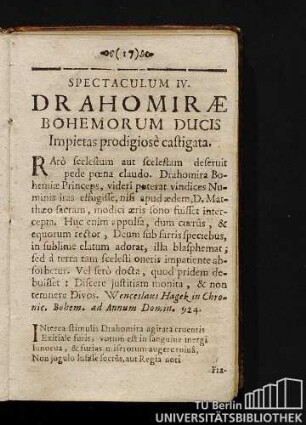 (17)
SPECTACULUM IV.
DRAHOMIRÆ
BOHEMORUM DUCIS
Impietas prodigiosè castigata.
RArò scelestum aut scelestam deseruit
pede pœna claudo. Drahomira Bo-
hemiæ Princeps, videri poterat vindices Nu-
minis iras effugisse, nisi apud ædem, D. Mat-
thæo sacram, modici æris sono fuisset inter-
cepta. Huc enim appulsa, dum currûs, &
equorum rector, Deum sub farris speciebus,
in sublime elatum adorat, illa blasphemat;
sed à terra tam scelesti oneris impatiente ab-
sorbetur. Vel serò docta, quod pridem de-
buisset: Discere justitiam monita, & non
temnere Divos. Wenceslaus Hagek in Chro-
nic. Bohem. ad Annum Domin. 924.
INterea stimulis Drahomira agitata cruentis
Exitiale furit, votum est in sanguine mergi
Innocua, & furias miserorum augere ruinâ,
Non jugulo satiase socrûs, aut Regia noti
Fra-
TU Berlin
UNIVERSITÄTSBIBLIOTHEK